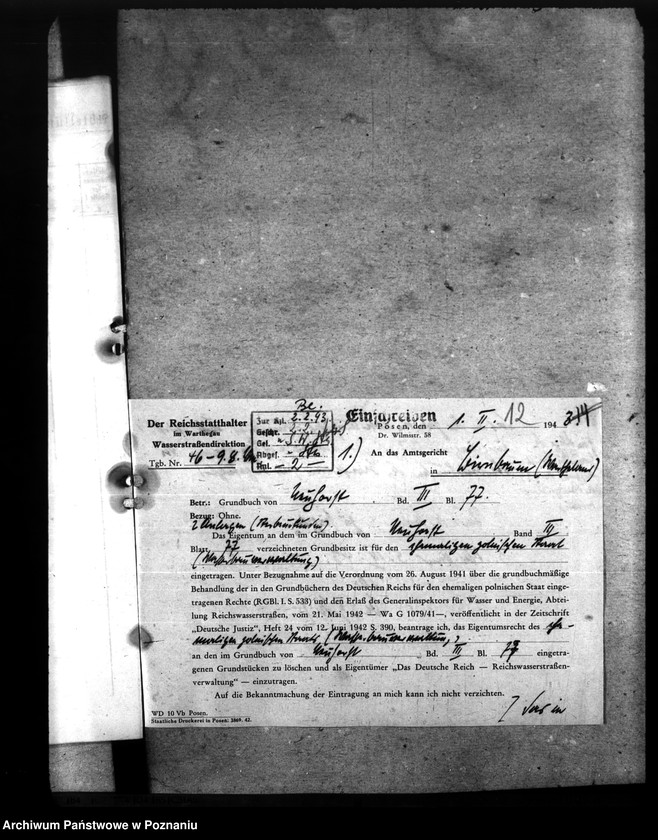 Be.
Der Reichsstatthalter
im Warthegau
Wasserstraßendirektion
Tgb. Nr. 46-98
Zur Kzl. 2.2.43.
Geschr.
Gel.
Abges.
Anl. - 2 -
Einschreiben
Posen, den 1. II. 12 194
Dr. Wilmsstr. 58
1.)
An das Amtsgericht
in Birnbaum (Wartheland)
Betr.: Grundbuch von Neuhorst Bd. III Bl. 77.
Bezug: Ohne.
2 Anlagen
Das Eigentum an dem im Grundbuch von Neuhorst Band III
Blatt 77 verzeichneten Grundbesitz ist für den ehemaligen polnischen Staat
(Wasserbauverwaltung)
eingetragen. Unter Bezugnahme auf die Verordnung vom 26. August 1941 über die grundbuchmäßige
Behandlung der in den Grundbüchern des Deutschen Reichs für den ehemaligen polnischen Staat einge-
tragenen Rechte (RGBl. I. S. 533) und den Erlaß des Generalinspektors für Wasser und Energie, Abtei-
lung Reichswasserstraßen, vom 21. Mai 1942 — Wa G 1079/41—, veröffentlicht in der Zeitschrift
„Deutsche Justiz“, Heft 24 vom 12. Juni 1942 S. 390, beantrage ich, das Eigentumsrecht des ehe-
maligen polnischen Staats (Wasserbauverwaltung)
an den im Grundbuch von Neuhorst Bd. III Bl. 77 eingetra-
genen Grundstücken zu löschen und als Eigentümer „Das Deutsche Reich — Reichswasserstraßen-
verwaltung“ — einzutragen.
Auf die Bekanntmachung der Eintragung an mich kann ich nicht verzichten.
WD 10 Vb Posen.
Staatliche Druckerei in Posen: 3869. 42.
Archiwum Państwowe w Poznaniu